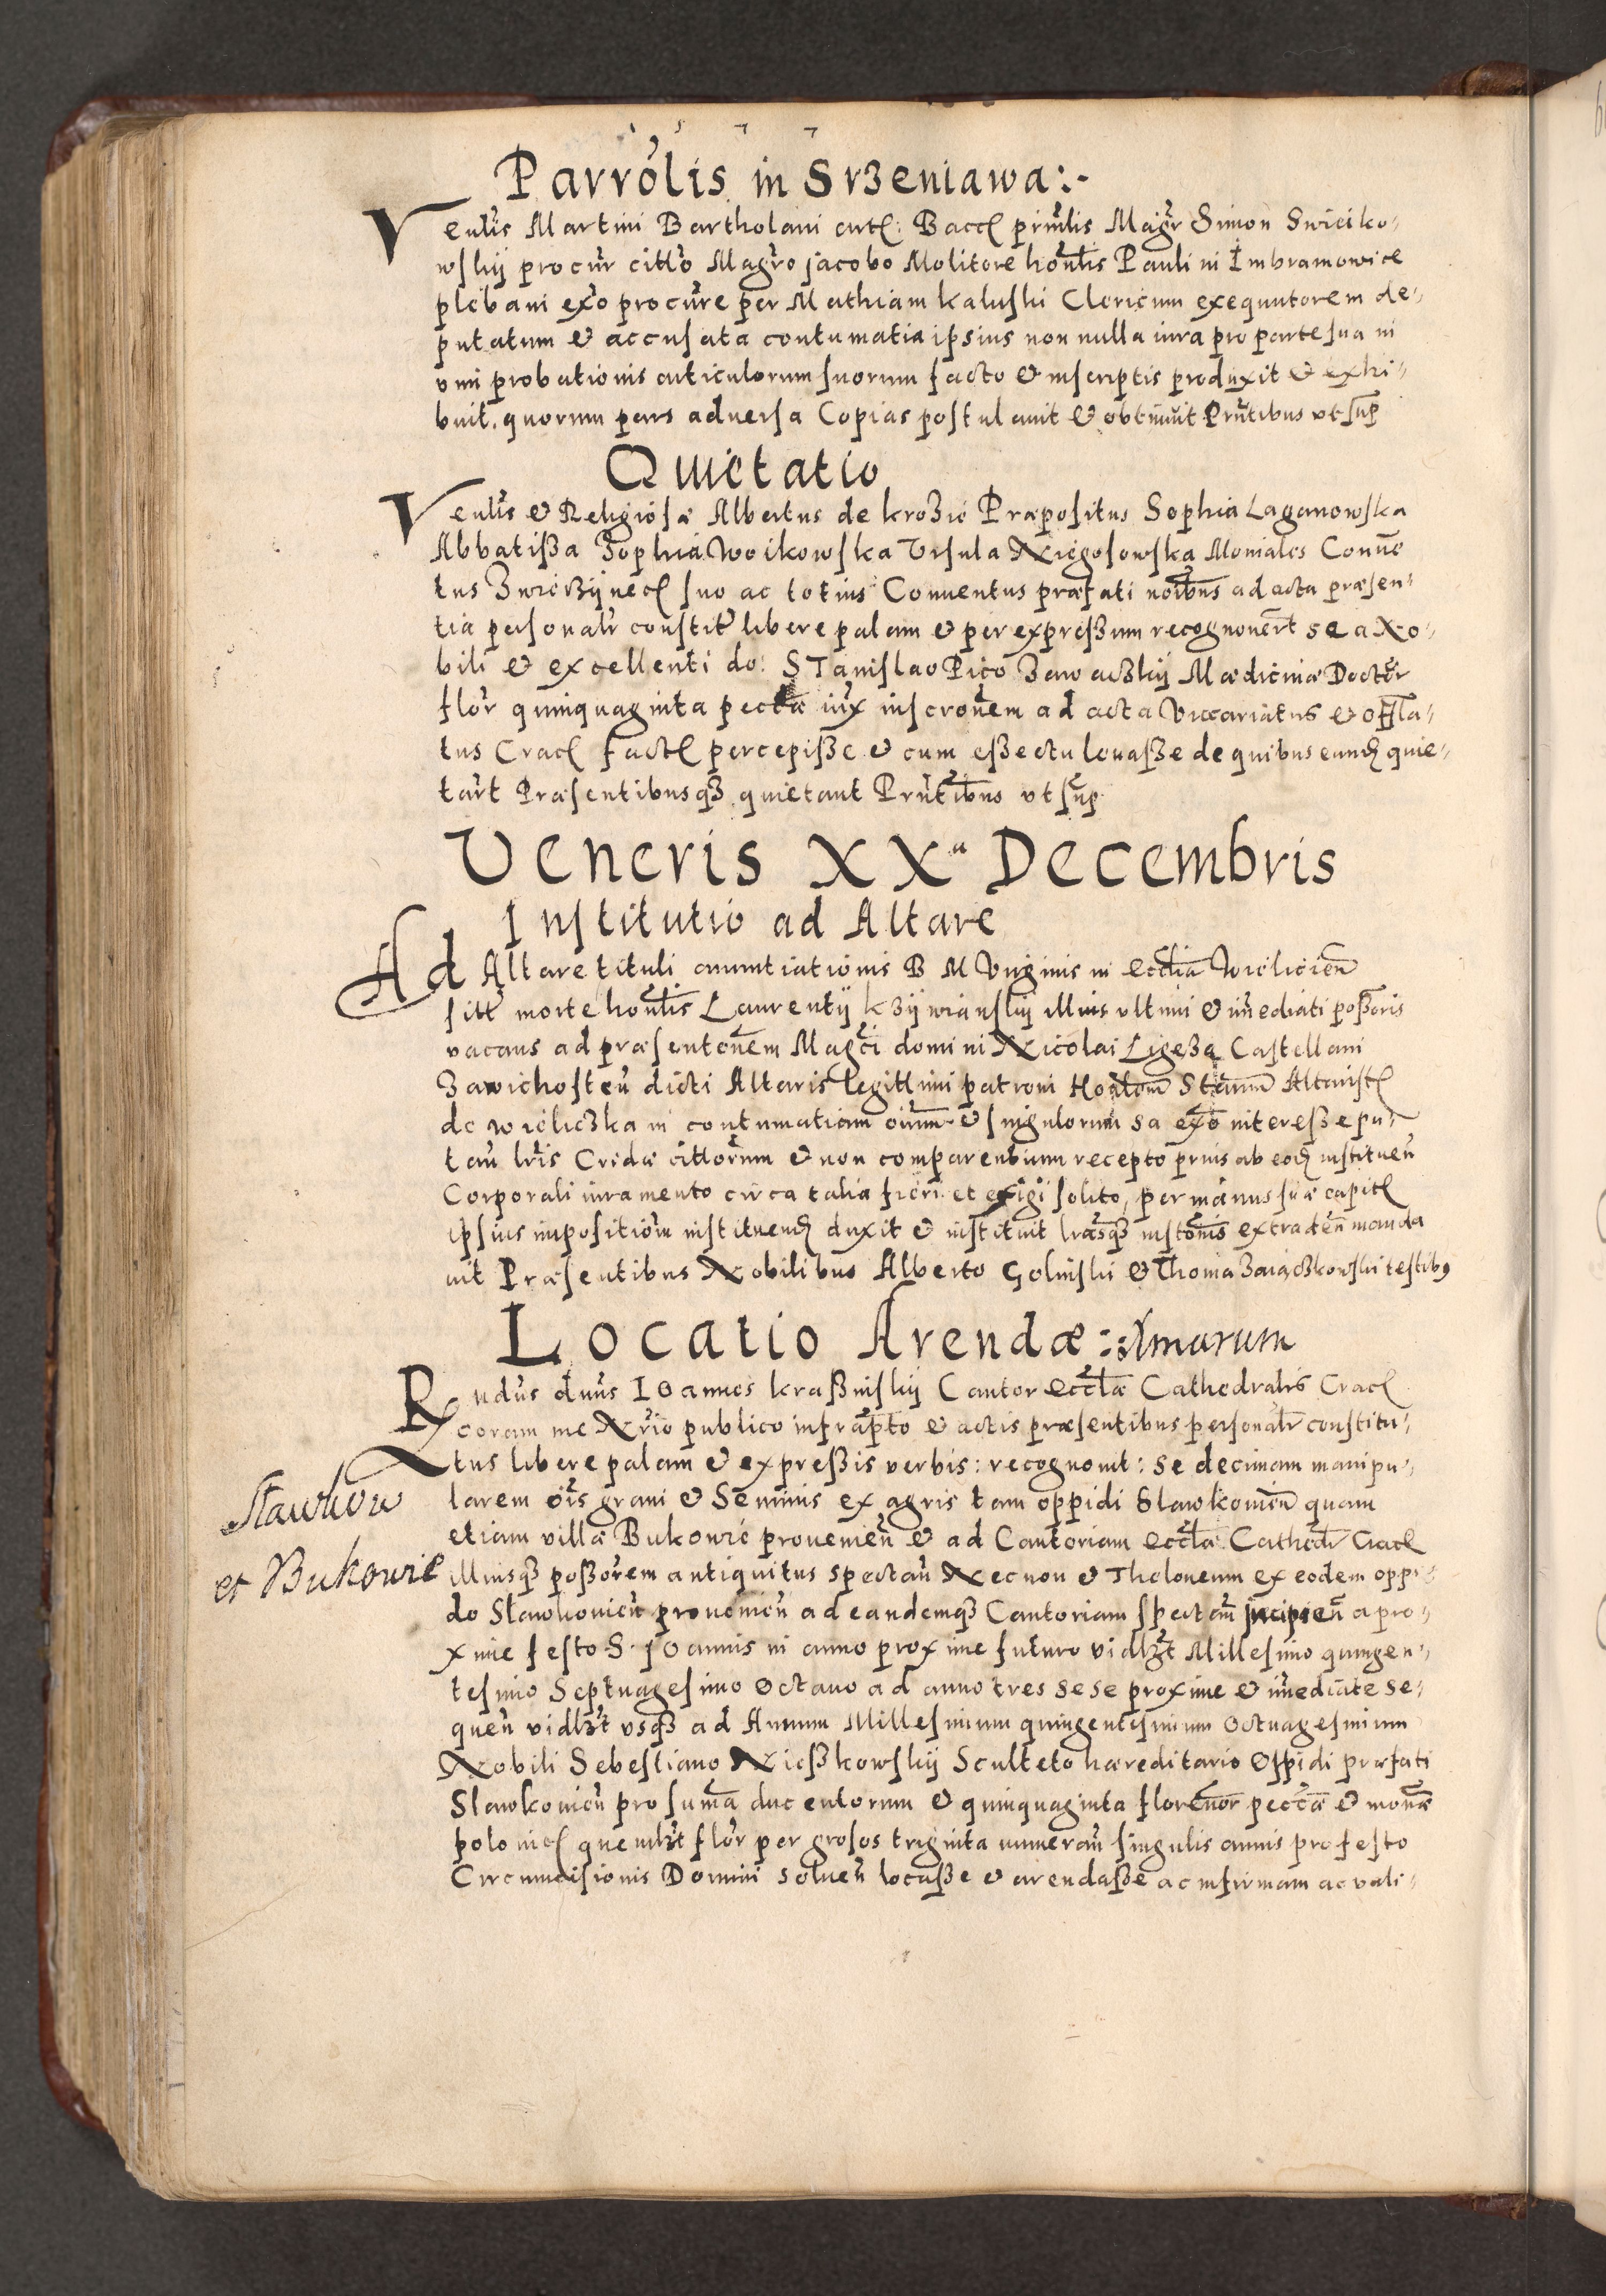 1 5 7 7
Parrőlis in Srzeniawa:-
Venlis Martini Bartholani art: Bacc prinilis Magr Simon Swieciko-
wskij procur citto Magro jacobo Molitore honlis Pauli in Imbramowice
plebani exo procure per Mathiam kaluski Clericum exequutorem de-
putatum & accusata contumatia ipsius non nulla iura pro parte sua in
vim probationis articulorum suorum facto & inscriptis produxit & exhi-
buit. quorum pars aduersa Copias postulauit & obtinuit Pritibus ut sup
Quietatio
Venlis & Religiosæ Albertus de krozie Præpositus Sophia Laganowska
Abbatissa Sophia Woikowska Vrsula Niegosowska Moniales Conue
tus Zwierzijnec suo ac totius Conuentus præfati noibus ad acta præsen-
tia personalr constit libere palam & per expressum recognouert se a No-
bili & excellenti do: STanislao Pico Zawaczkij Mædicinæ Doctor
flor quinquaginta pectæ iux inscronem ad acta Vicariatus & offla-
tus Crac fact percepisse & cum effectu leuasse de quibus eund quie-
tart Præsentibusqz quietant Prntibus ut sup
Veneris XXa Decembris
Institutio ad Altare
Ad Altare tituli anuntiationis B M Virginis in ecclia Wielicien
sitt morte honlis Laurentij kzijwianskij illius ultimi & imediati possoris
vacans ad præsentonem Magci domini Nicolai Ligeza Castellani
Zawichosten dicti Altaris legittimi patroni Stanm Altarist
de wieliczka in contumatiam oium & singulorum sa exo interesse pu-
tan lris Cridæ cittorum & non comparentium recepto prius ab eod instituen
Corporali iuramento circa talia fieri et exigi solito, per manus suæ capit
ipsius impositiom instituend duxit & instituit lrasqz instonis extraden manda
uit Præsentibus Nobilibus Alberto Golinski & Thoma Zaiączkowski testibus
Locatio Arendæ:
Rndus dnus IOannes krassinskij Cantor ecclæ Cathedralis Crac
coram me Nrio publico infrapto & actis præsentibus personalr constitu-
tus libere palam & expressis verbis: recognouit: se decimam manipu-
larem ois grani & Seminis ex agris tam oppidi Slawkouien quam
etiam villæ Bukowie prouenien & ad Cantoriam ecclæ Cathedr Crac
Slawkow
et Bukowie
illiusqz possorem antiquitus spectan Necnon & Theloneum ex eodem oppi-
do Slawkouien prouenien ad eandemqz Cantoriam spectan incipien a pro-
xime festo S. jOannis in anno proxime futuro vidlzt Millesimo quingen-
tesimo Septuagesimo Octauo ad anno tres sese proxime & imediate se-
quen vidlzt usqz ad Annum Millesimum quingentesimum Octuagesimum
Nobili Sebestiano Nieszkowskij Sculteto hæreditario Oppidi præfati
Slawkouien pro suma ducentorum & quinquaginta florenor peccæ & monæ
polonic quemlzt flor per grosos triginta numeran singulis annis pro festo
Circumcisionis Domini soluen locasse & arendasse ac infirmam ac vali-